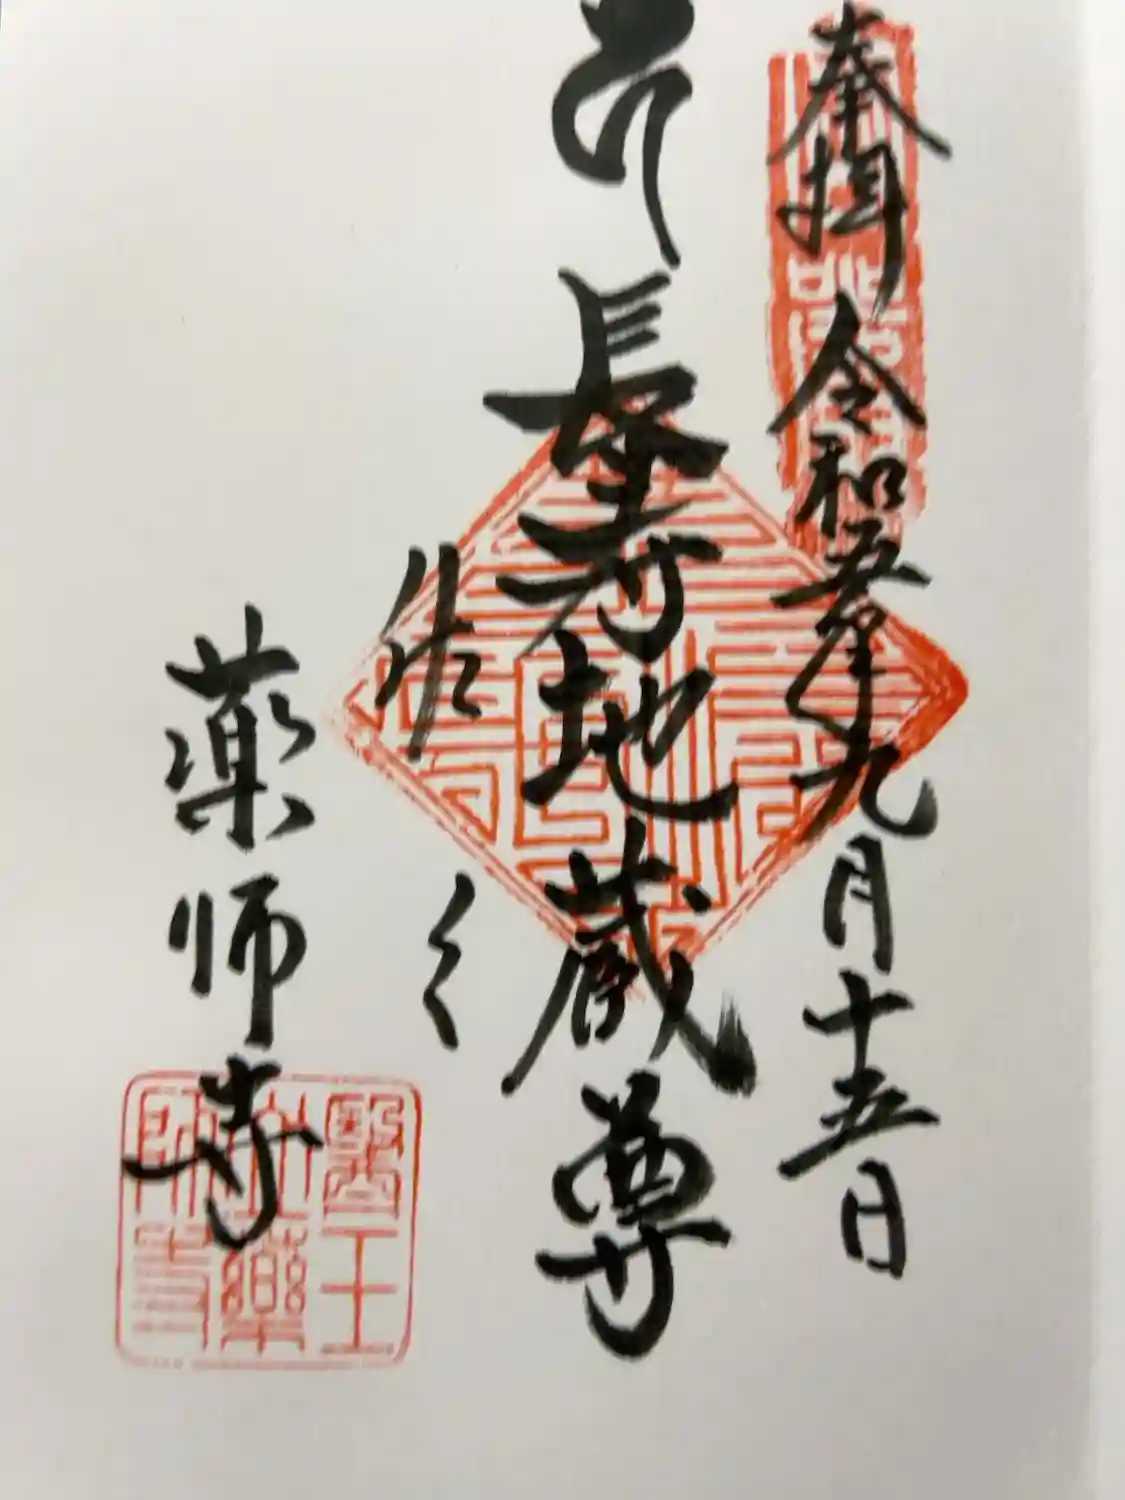 奉拝 令和五年九月十五日
長寿地蔵尊
薬師寺
醫王
山薬
師寺